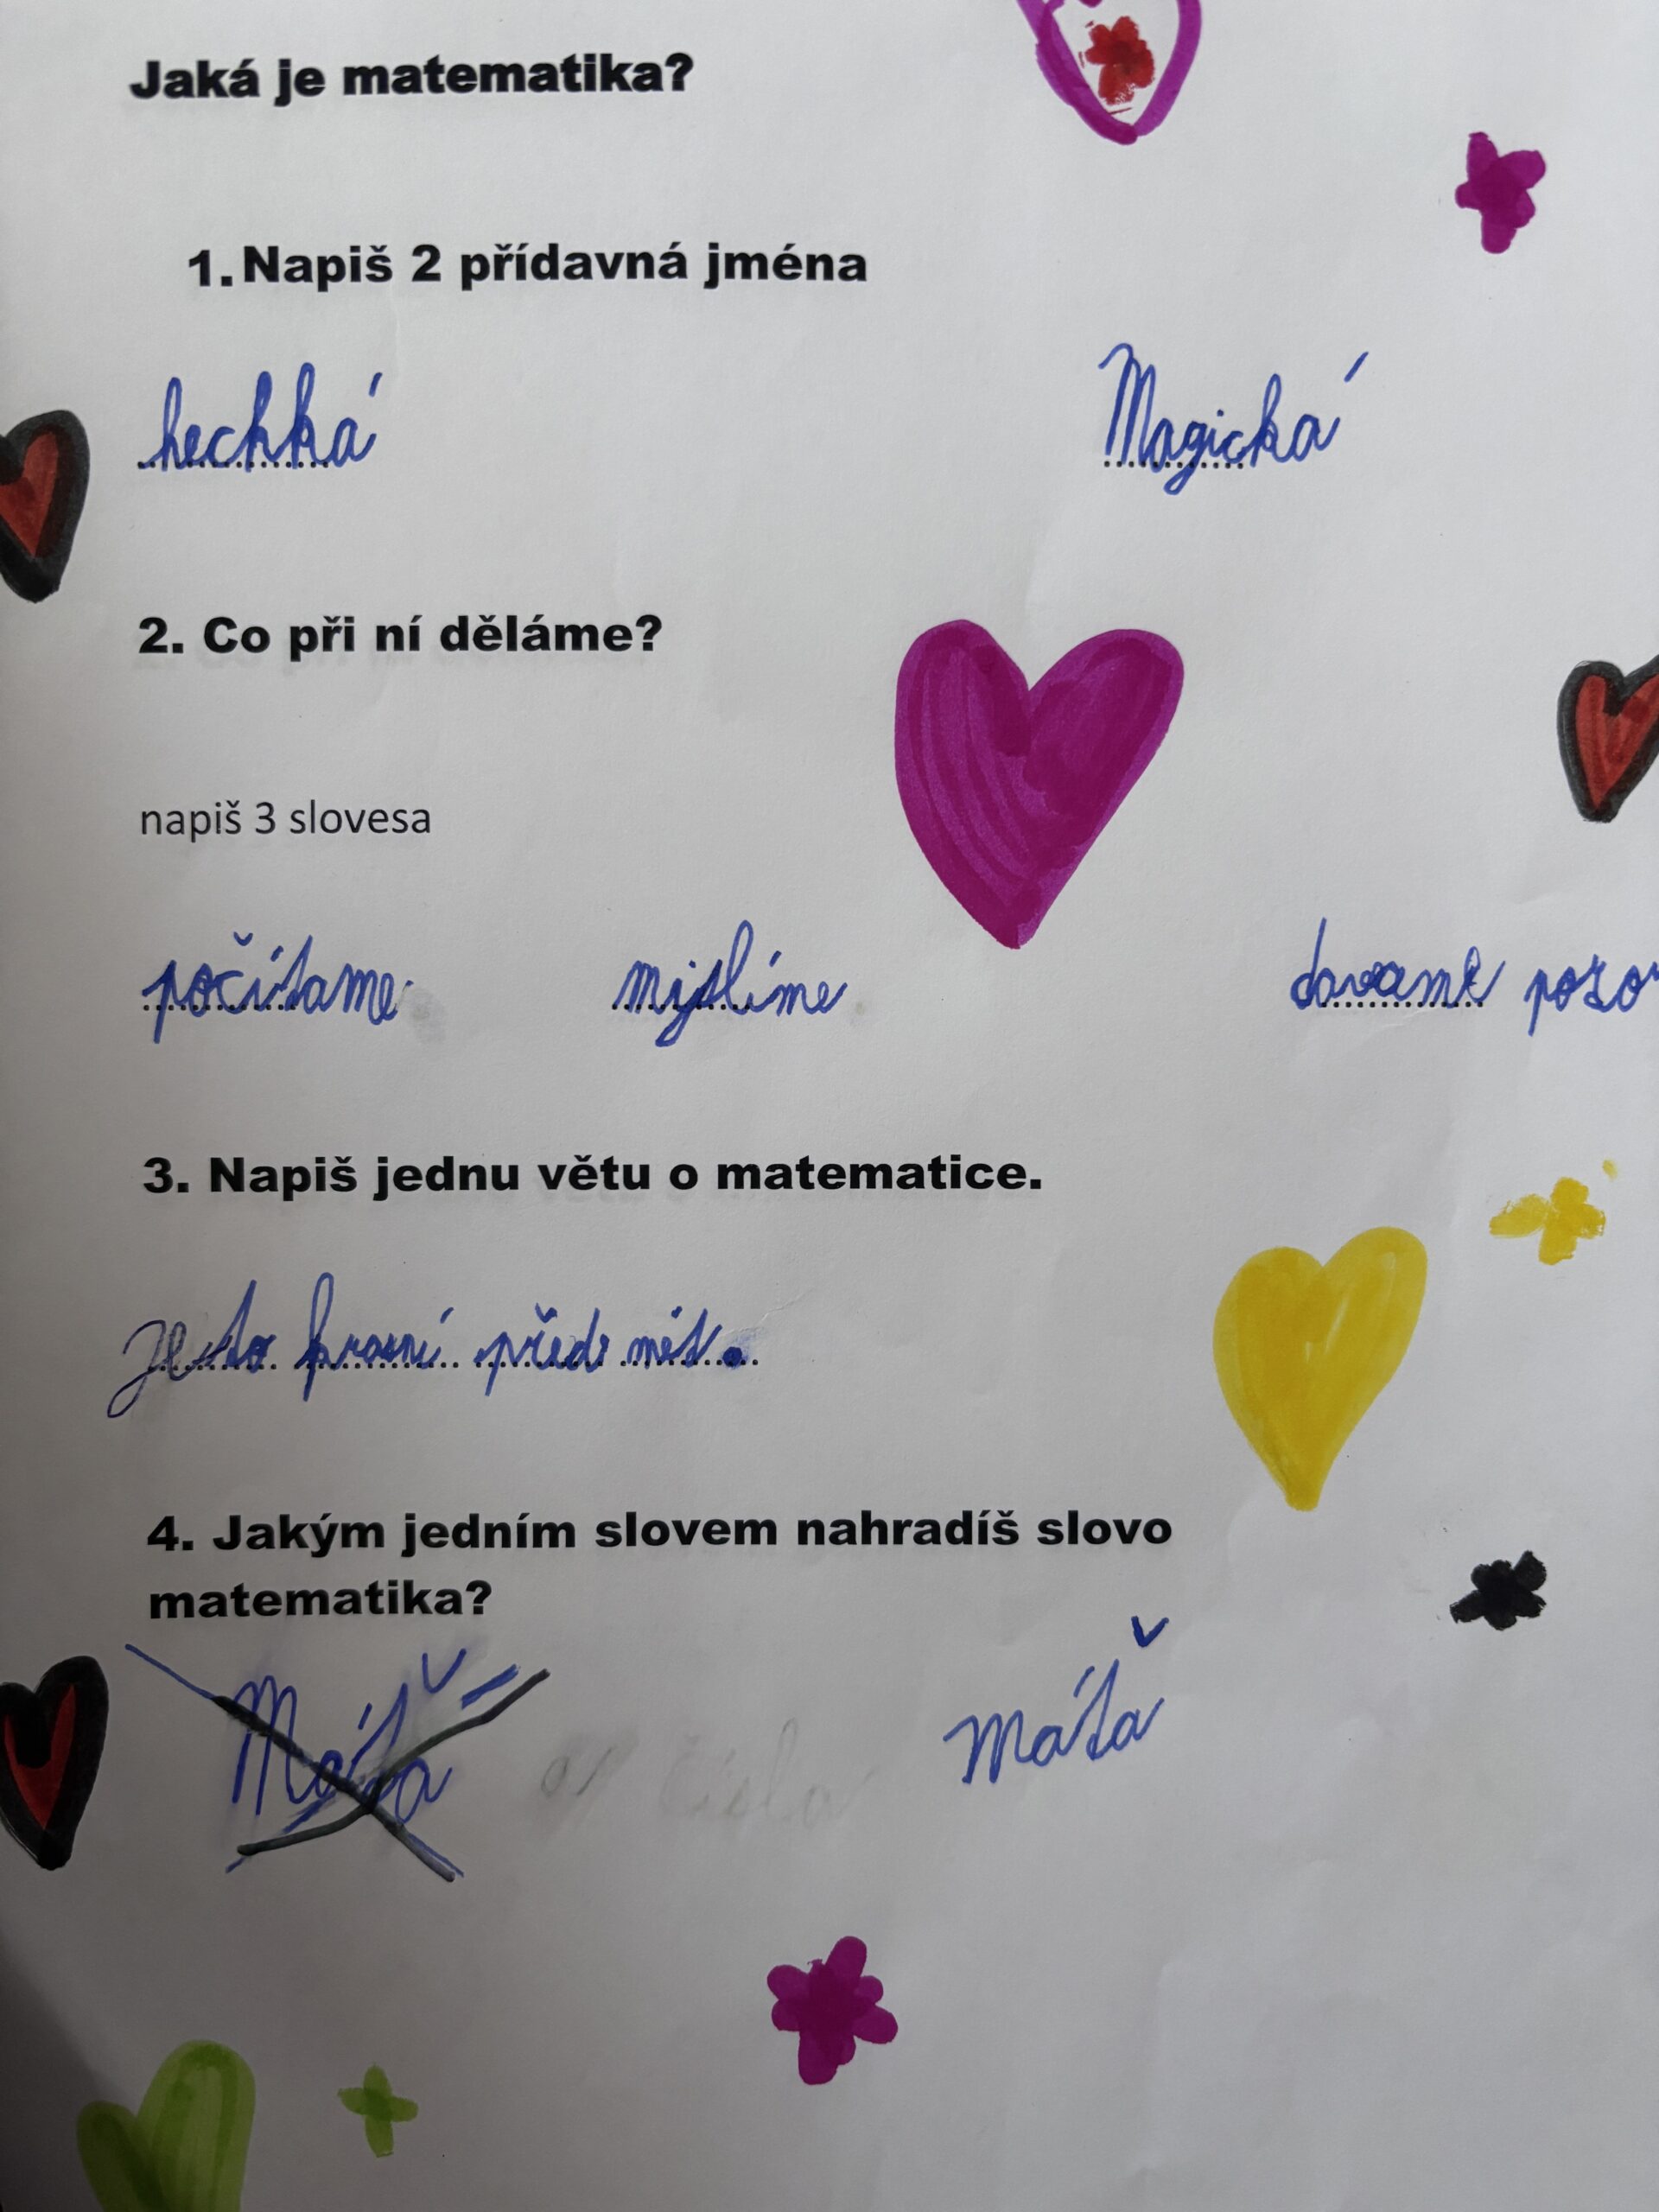 Jaká je matematika?
1. Napiš 2 přídavná jména
hechká Magická
2. Co při ní děláme?
napiš 3 slovesa
počítame myslíme davame pozo
3. Napiš jednu větu o matematice.
je to krasní před mět.
4. Jakým jedním slovem nahradíš slovo
matematika?
Máťa čísla máťa